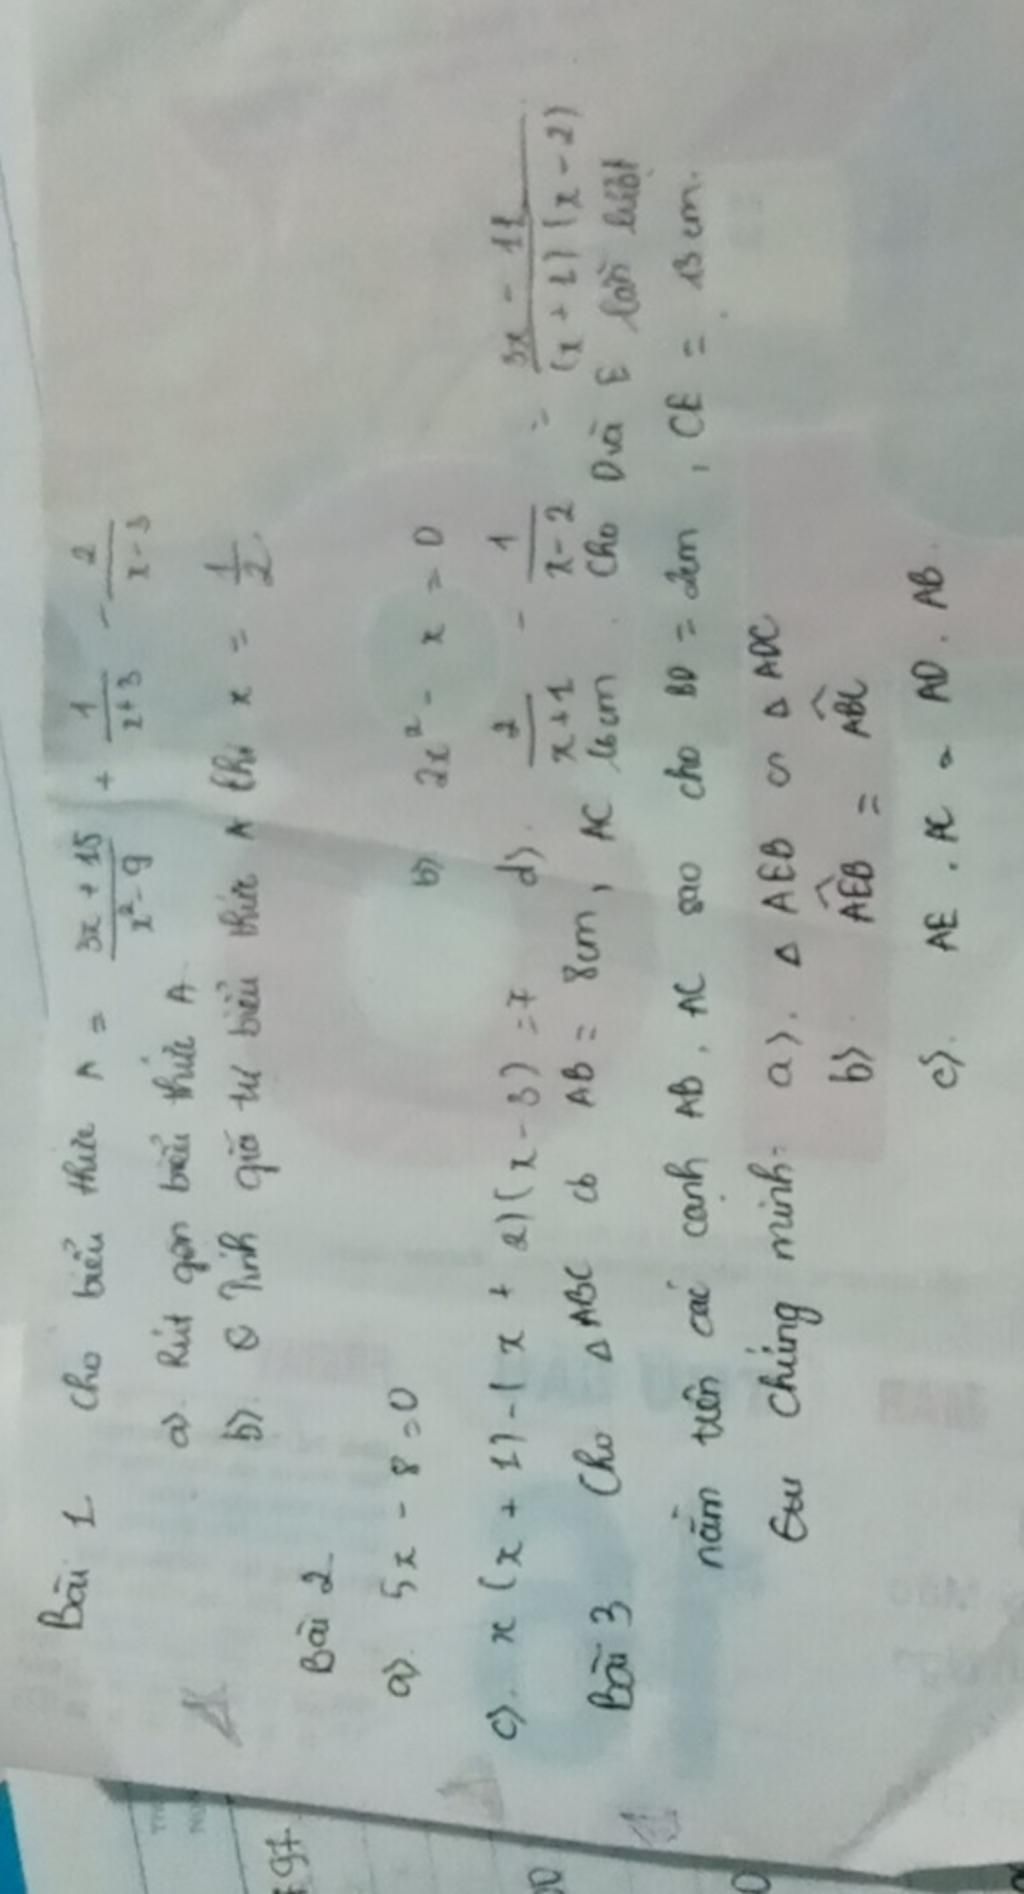 Bài 1 Cho biểu thức A = (3x + 15)/(x² - 9) + 1/(x + 3) - 2/(x - 3)
a). Rút gọn biểu thức A
b). Tính giá trị biểu thức A khi x = 1/2
Bài 2
a). 5x - 8 = 0 b) 2x² - x = 0
c). x(x + 1) - (x + 2)(x - 3) = 7 d). 2/(x + 1) - 1/(x - 2) = (3x - 11)/((x + 1)(x - 2))
Bài 3 Cho Δ ABC có AB = 8cm, AC 16cm. Cho D và E lần lượt
nằm trên các cạnh AB, AC sao cho BD = 2cm, CE = 13cm.
chứng minh: a). Δ AEB ∽ Δ ADC
b) AEB = ABC
c). AE . AC = AD . AB.
97